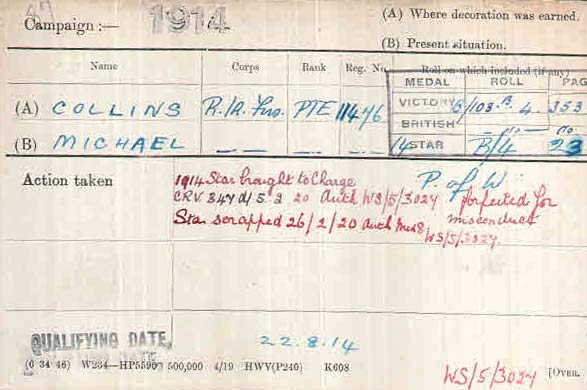 Campaign :— 1914
(A) Where decoration was earned.
(B) Present situation.
Name Corps Rank Reg. No. Roll on which included (if any)
MEDAL ROLL PAG
(A) COLLINS R. Ir. Fus. PTE 11476 VICTORY 5/103.B.4. 353
BRITISH — do — — do —
(B) MICHAEL — — — 14 STAR B/4 23
Action taken 1914 Star brought to Charge P. of W:
CRV 347 d/ 5 2 20 Auth WS/5/3027 forfeited for
Star scrapped 26/2/20 Auth misconduct
WS/5/3027.
QUALIFYING DATE, 22.8.14
(6 34 46) W234—HP5590 500,000 4/19 HWV(P240) K608
WS/5/3027 [OVER.